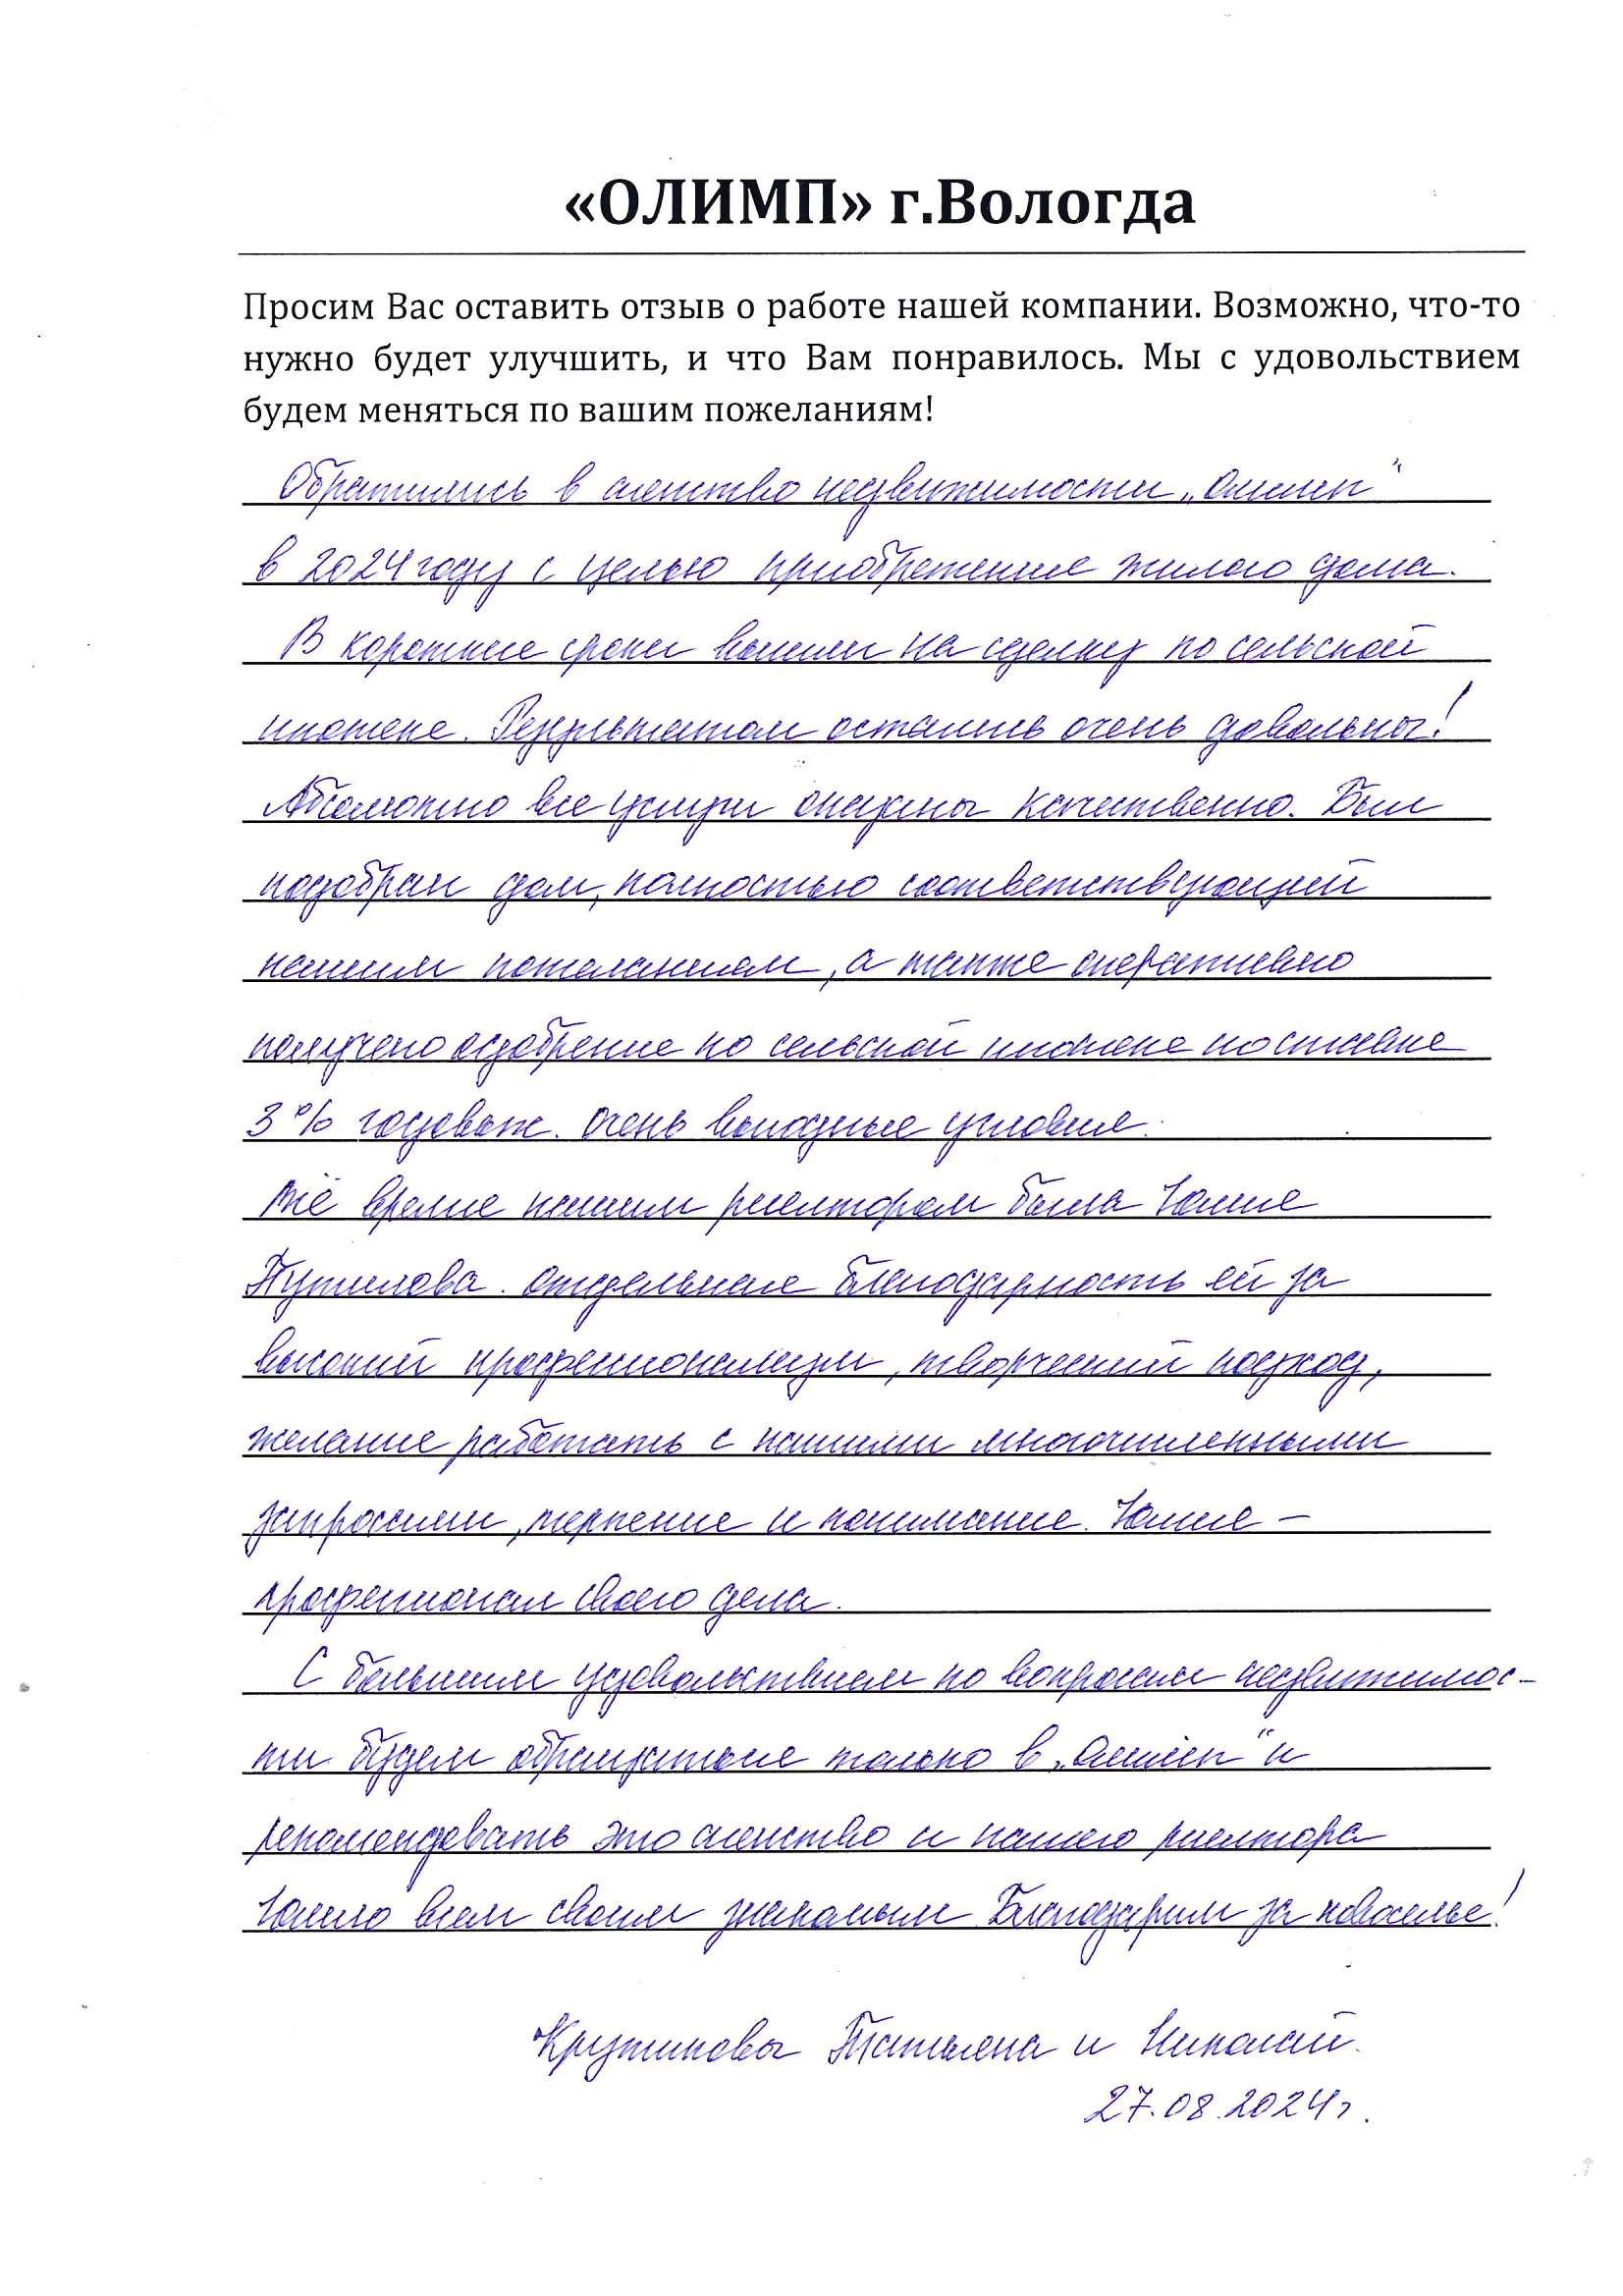 «ОЛИМП» г.Вологда
Просим Вас оставить отзыв о работе нашей компании. Возможно, что-то
нужно будет улучшить, и что Вам понравилось. Мы с удовольствием
будем меняться по вашим пожеланиям!
Обратились в агенство недвижимости „Олимп“
в 2024 году с целью приобретения жилого дома.
В короткие сроки вышли на сделку по сельской
ипотеке. Результатом остались очень довольны!
Абсолютно все услуги оказаны качественно. Был
подобран дом, полностью соответствующий
нашим пожеланиям, а также оперативно
получено одобрение по сельской ипотеке по ставке
3% годовых. Очень выгодные условия.
Всё время нашим риелтором была Юлия
Путилова. Отдельная благодарность ей за
высокий профессионализм, творческий подход,
желание работать с нашими многочисленными
запросами, терпение и понимание. Юлия –
профессионал своего дела.
С большим удовольствием по вопросам недвижимос-
ти будем обращаться только в „Олимп“ и
рекомендовать это агенство и нашего риелтора
Юлию всем своим знакомым. Благодарим за новоселье!
Крутиковы Татьяна и Николай.
27.08.2024 г.